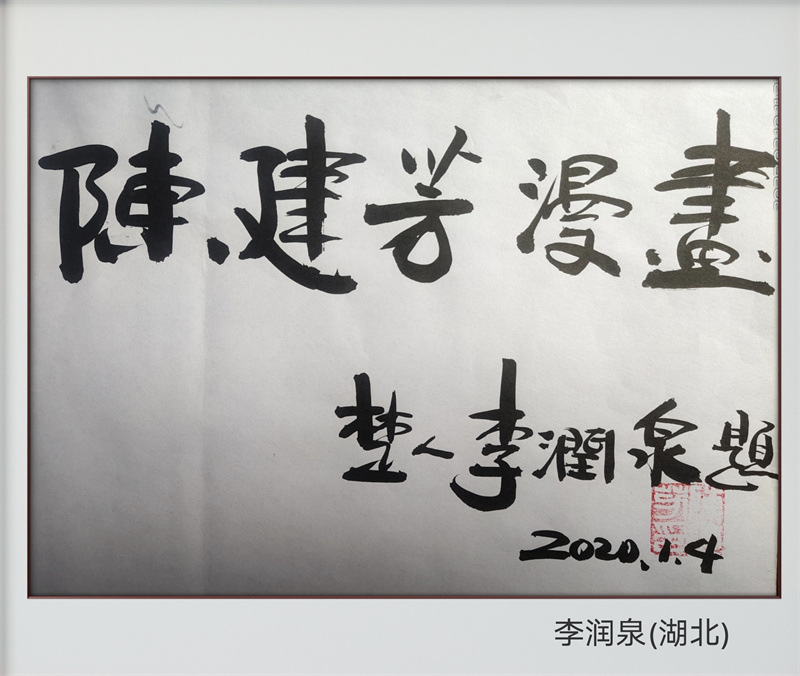 陳建芳漫畫
楚人李潤泉題
2020.1.4
李润泉(湖北)